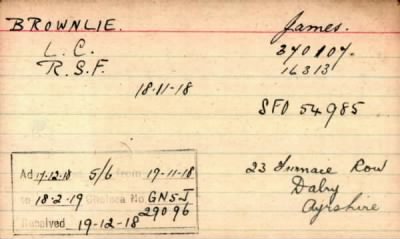 BROWNLIE. James.
L.C. 370107.
R.S.F. 16313
18-11-18
SFO 54985
Ad 17-12-18 5/6 from 19-11-18
to 18-2-19 Chelsea No. GN5J
29096
Received 19-12-18
23 Furnace Row
Dalry
Ayrshire